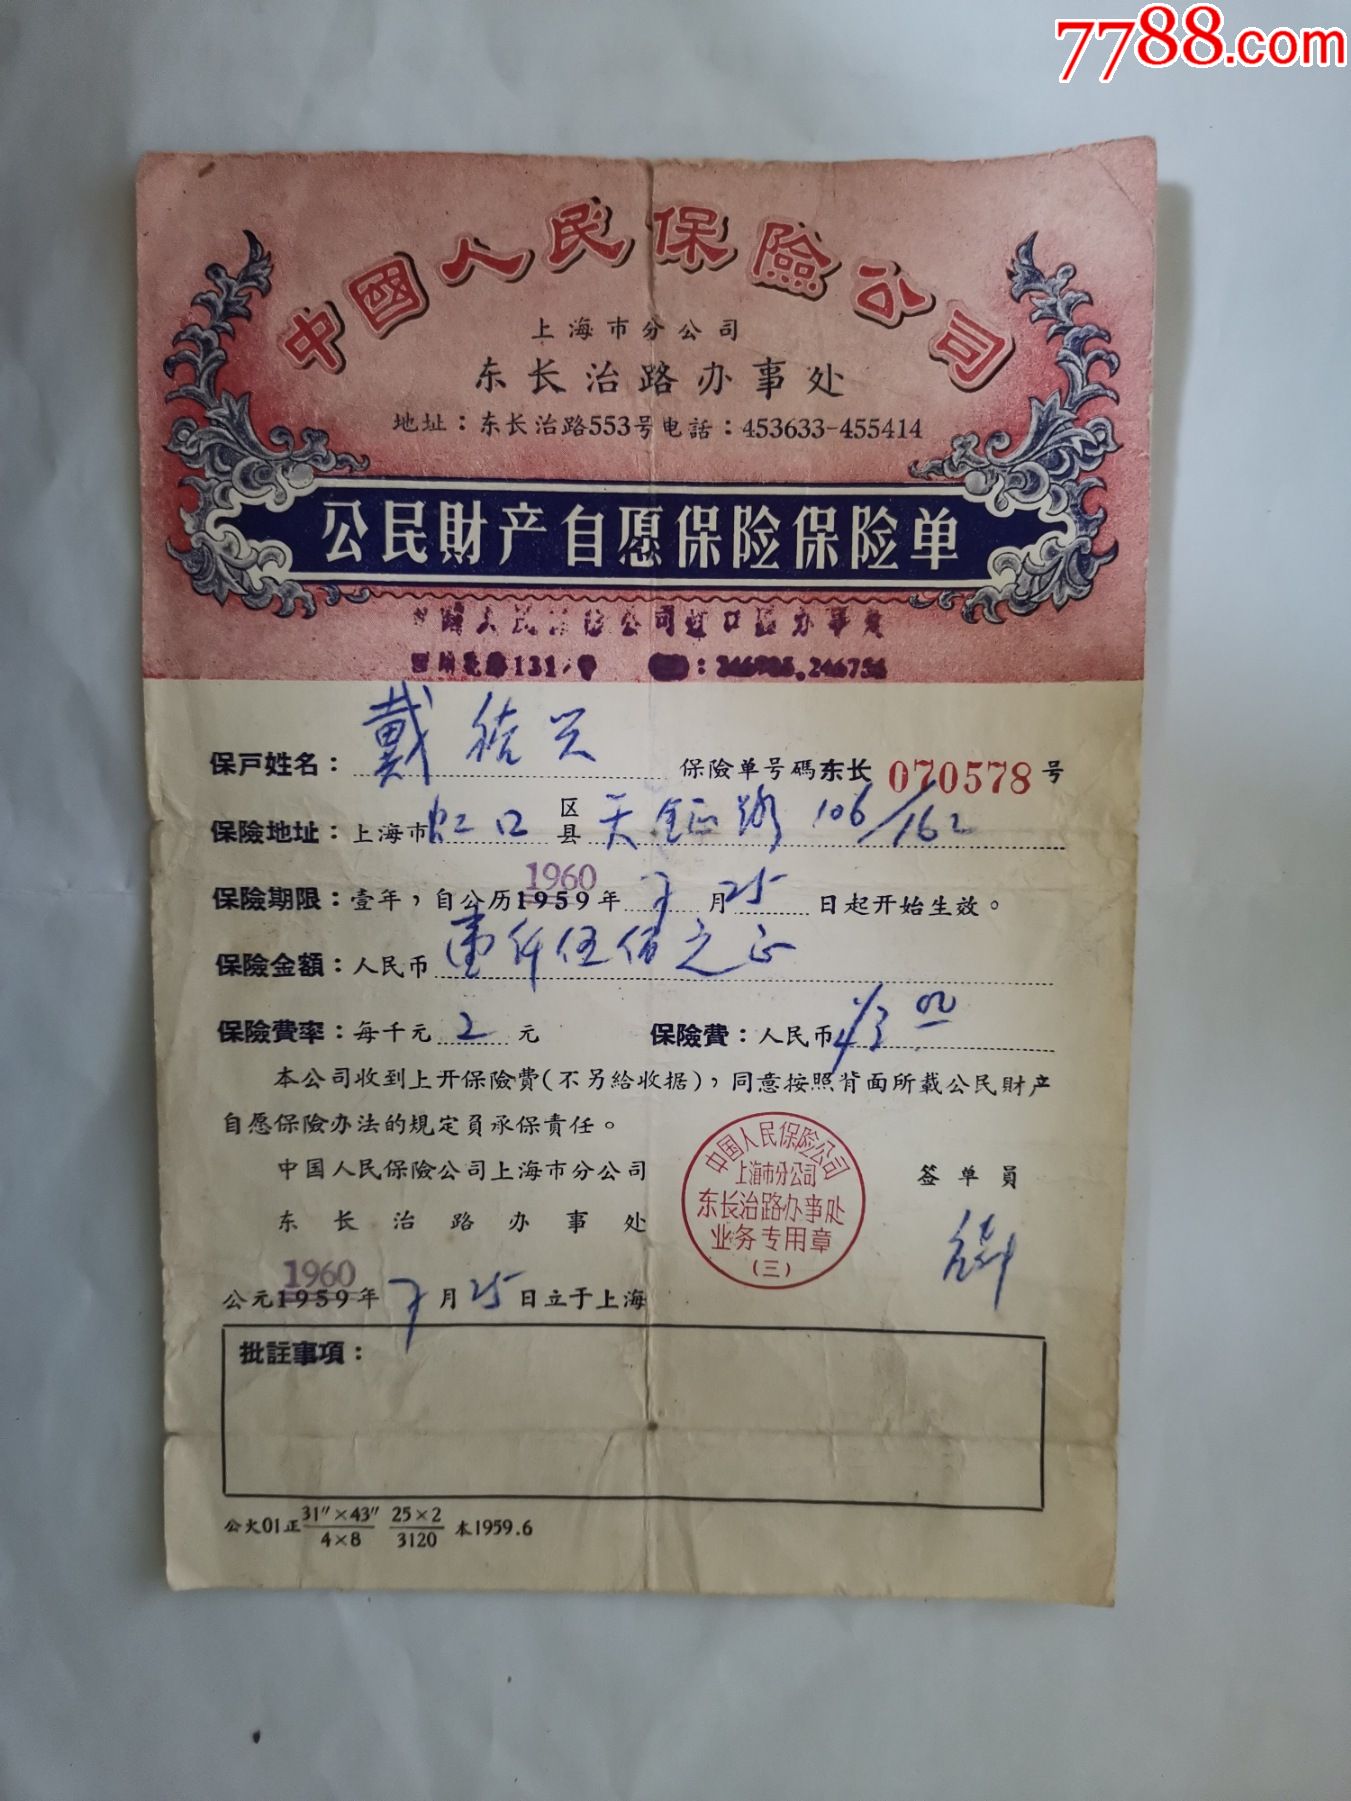 7788.com
中國人民保險公司
上海市分公司
东长治路办事处
地址：东长治路553号电話：453633-455414
公民財产自愿保险保险单
中國人民保險公司虹口區办事處
131 号 ：246756
保戶姓名：戴 兴 保險单号碼东长 070578 号
保險地址：上海市虹口区县天 路 106/162
保險期限：壹年，自公历1959 1960年7月25日起开始生效。
保險金額：人民币壹仟伍佰元正
保險費率：每千元2元 保險費：人民币¥3.00
本公司收到上开保險費(不另給收据)，同意按照背面所載公民財产
自愿保險办法的規定負承保責任。
中国人民保險公司上海市分公司 签单員
东长治路办事处
中国人民保险公司
上海市分公司
东长治路办事处
业务专用章
(三)
公元1959 1960年7月25日立于上海
批註事項：
公火01正 31"×43" / 4×8 25×2 / 3120 本1959.6